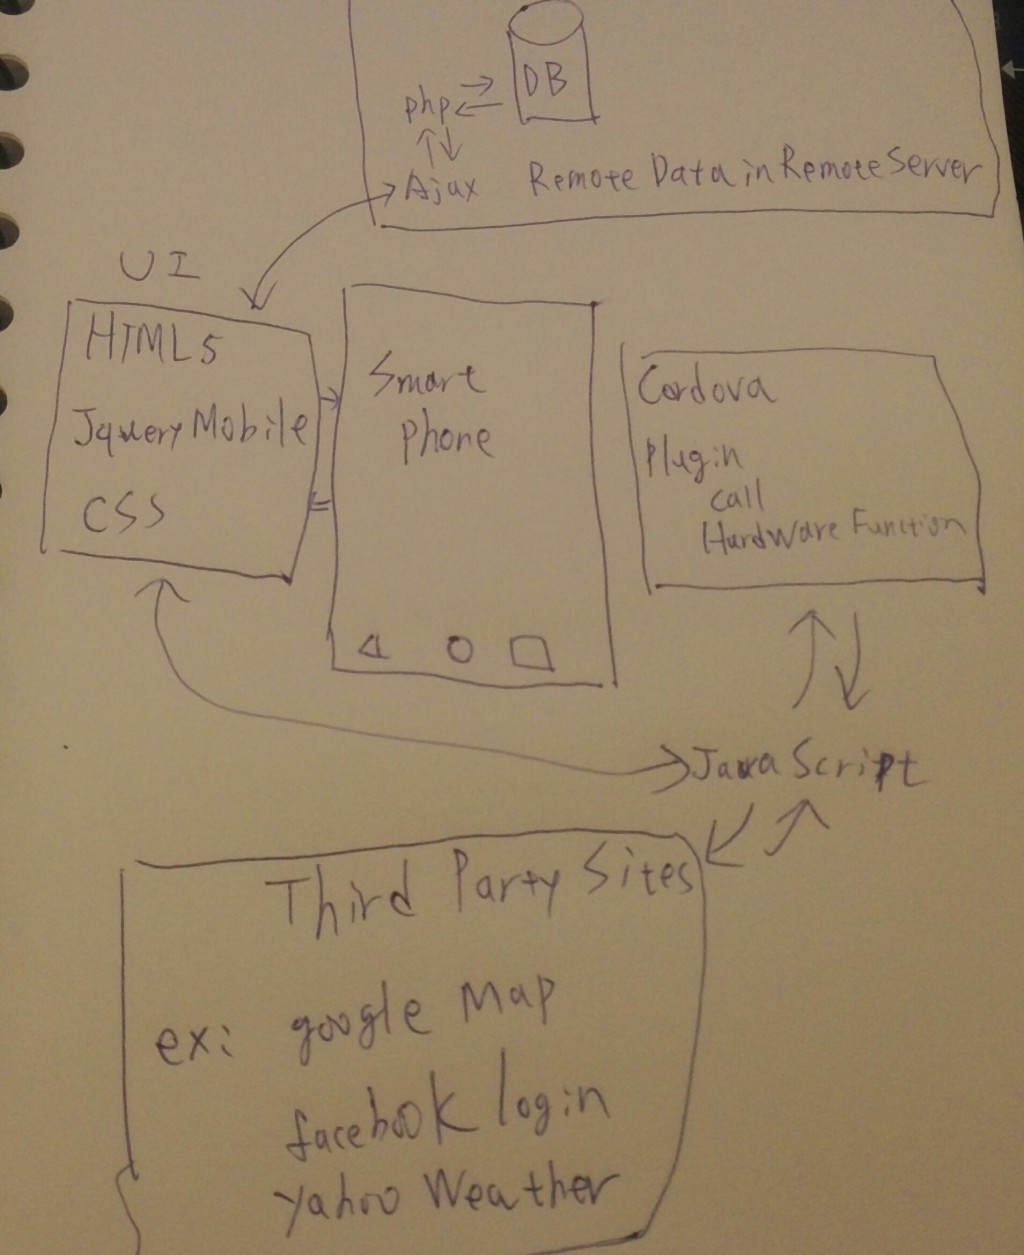 DB
php
Ajax
Remote Data in Remote Server
UI
HTML5
Jquery Mobile
CSS
Smart
phone
Cordova
Plugin
call
HardWare Function
JavaScript
Third Party Sites
ex: google Map
facebook login
yahoo Weather